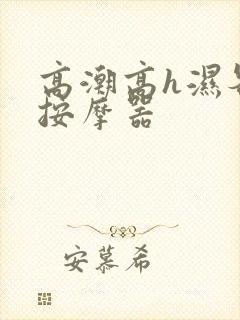 高潮高h湿
按摩器
安慕希